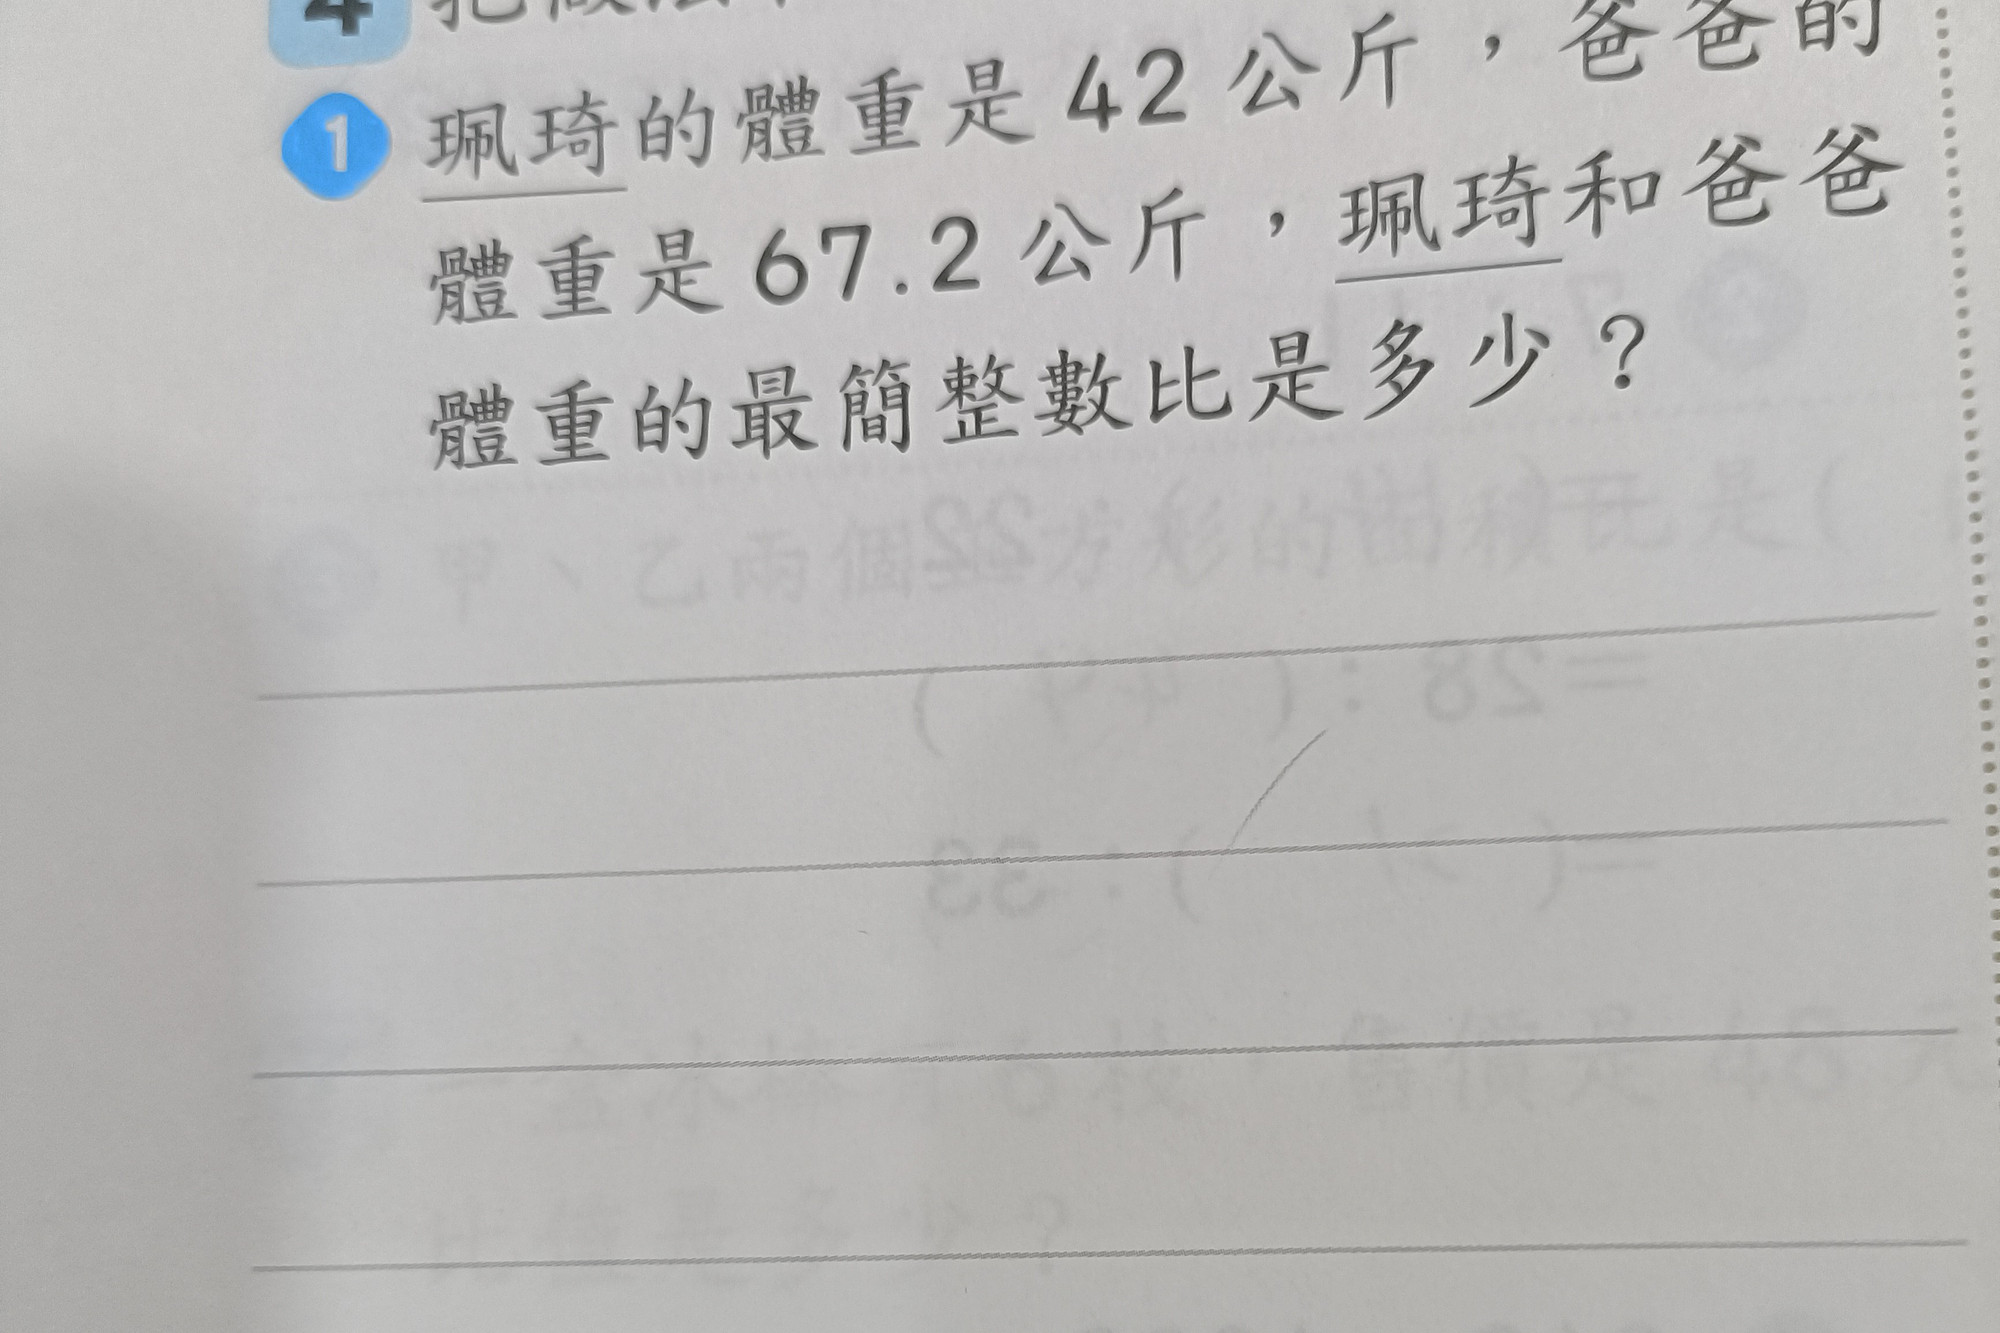 4 把做法
1 珮琦的體重是 42 公斤，爸爸的
體重是 67.2 公斤，珮琦和爸爸
體重的最簡整數比是多少？